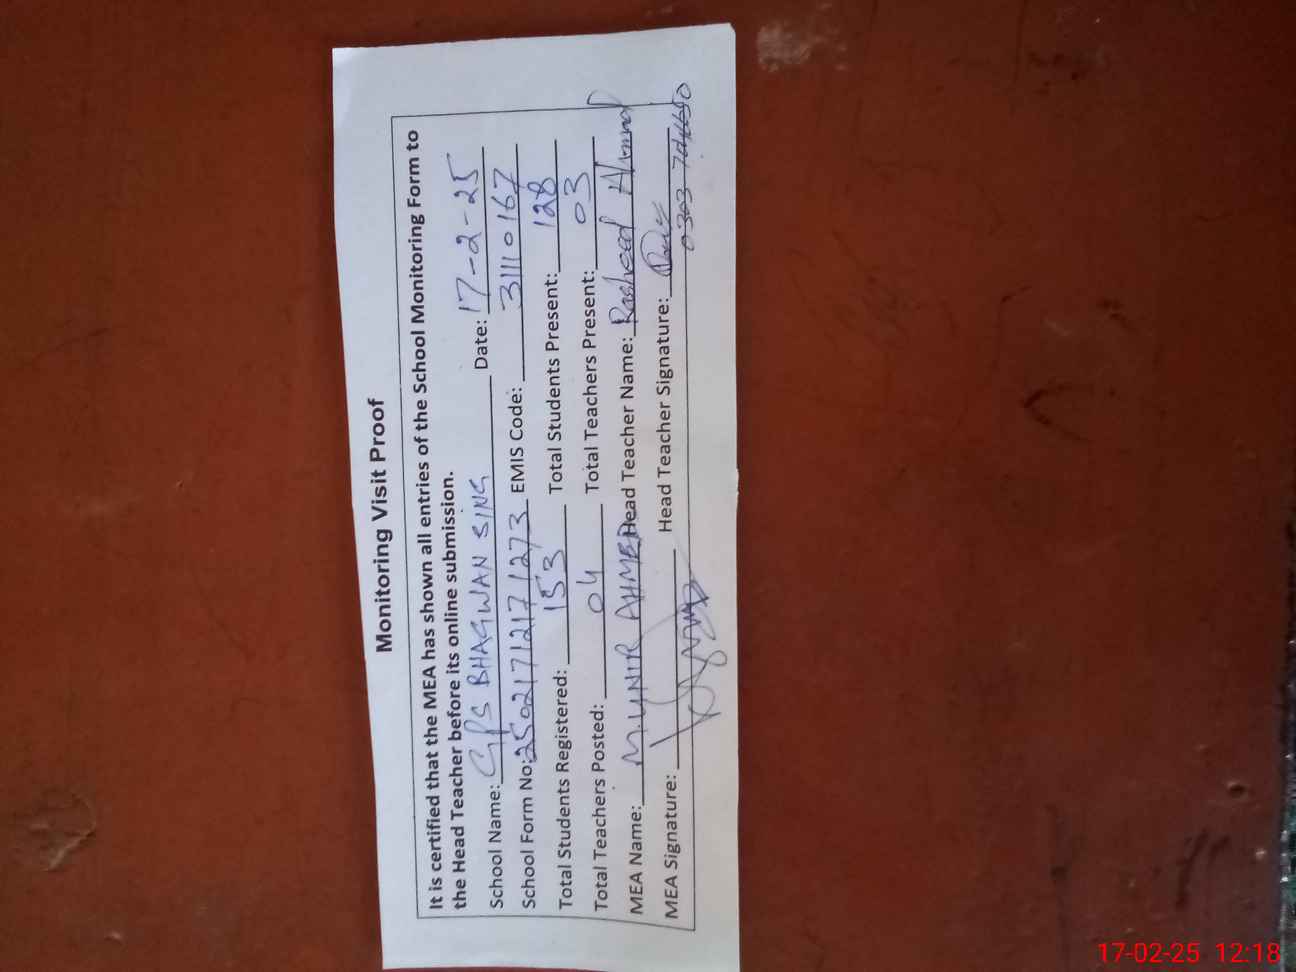 Monitoring Visit Proof
It is certified that the MEA has shown all entries of the School Monitoring Form to
the Head Teacher before its online submission.
School Name: GPS BHAGWAN SING Date: 17-2-25
School Form No: 25021712171273 EMIS Code: 31110167
Total Students Registered: 153 Total Students Present: 128
Total Teachers Posted: 04 Total Teachers Present: 03
MEA Name: M. UNIR AHMED Head Teacher Name: Rasheed Ahmad
MEA Signature: Head Teacher Signature:
0303
17-02-25 12:18